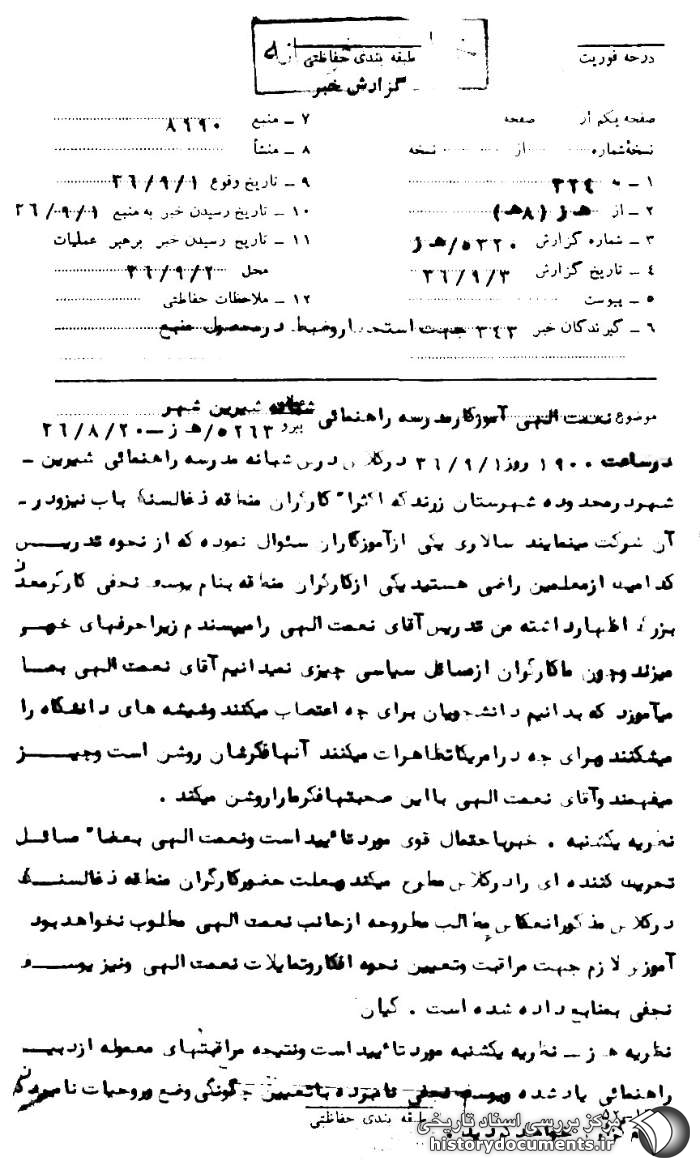 درجه فوریت
طبقه بندی حفاظتی
گزارش خبر
صفحه یکم از صفحه
نسخهٔ شماره از نسخه
۱ ـ به ۳۴۴
۲ ـ از هـ ز (۸هـ)
۳ ـ شماره گزارش ۵۳۲۰/هـ ز
۴ ـ تاریخ گزارش ۳۶/۹/۳
۵ ـ پیوست
۶ ـ گیرندگان خبر ۳۴۳ جهت استحضار و ضبط در محصول منبع
۷ ـ منبع ۸۶۹۰
۸ ـ منشأ
۹ ـ تاریخ وقوع ۳۶/۹/۱
۱۰ ـ تاریخ رسیدن خبر به منبع ۳۶/۹/۱
۱۱ ـ تاریخ رسیدن خبر برهبر عملیات
محل ۳۶/۹/۲
۱۲ ـ ملاحظات حفاظتی
موضوع نعمت الهی آموزگار مدرسه راهنمائی شبانه شیرین شهر
پیرو ۵۲۶۳/هـ ز ـ ۳۶/۸/۲۰
در ساعت ۱۹۰۰ روز ۳۶/۹/۱ در کلاس درس شبانه مدرسه راهنمائی شیرین ـ
شهر در محدوده شهرستان زرند که اکثرا" کارگران منطقه ذغالسنگ باب نیزو در ـ
آن شرکت مینمایند سالاری یکی از آموزگاران سئوال نموده که از نحوه تدریس
کدامیک از معلمین راضی هستید یکی از کارگران منطقه بنام یوسف نجفی کارگر معدن
بزرگ اظهار داشته من تدریس آقای نعمت الهی را میپسندم زیرا حرفهای خوب
میزند و چون ما کارگران از مسائل سیاسی چیزی نمیدانیم آقای نعمت الهی بما
میآموزد که بدانیم دانشجویان برای چه اعتصاب میکنند و شیشه های دانشگاه را
میشکنند و برای چه در امریکا تظاهرات میکنند آنها فکرشان روشن است و چیز
میفهمند و آقای نعمت الهی با این صحبتها فکر ما را روشن میکند .
نظریه یکشنبه . خبر باحتمال قوی مورد تائید است و نعمت الهی بعضا" مسائل
تحریک کننده ای را در کلاس مطرح میکند و بعلت حضور کارگران منطقه ذغالسنگ
در کلاس مذکور انعکاس مطالب مطروحه از جانب نعمت الهی مطلوب نخواهد بود
آموزش لازم جهت مراقبت و تعیین نحوه افکار و تمایلات نعمت الهی و نیز یوسف
نجفی بمنابع داده شده است . کیان
نظریه هـ ز ـ نظریه یکشنبه مورد تائید است و نتیجه مراقبتهای معموله از دبیر
راهنمائی یاد شده و یوسف نجفی نامبرده با تعیین چگونگی وضع و روحیات نامبردگان
خواهد گردید .
طبقه بندی حفاظتی
مرکز بررسی اسناد تاریخی
historydocuments.ir